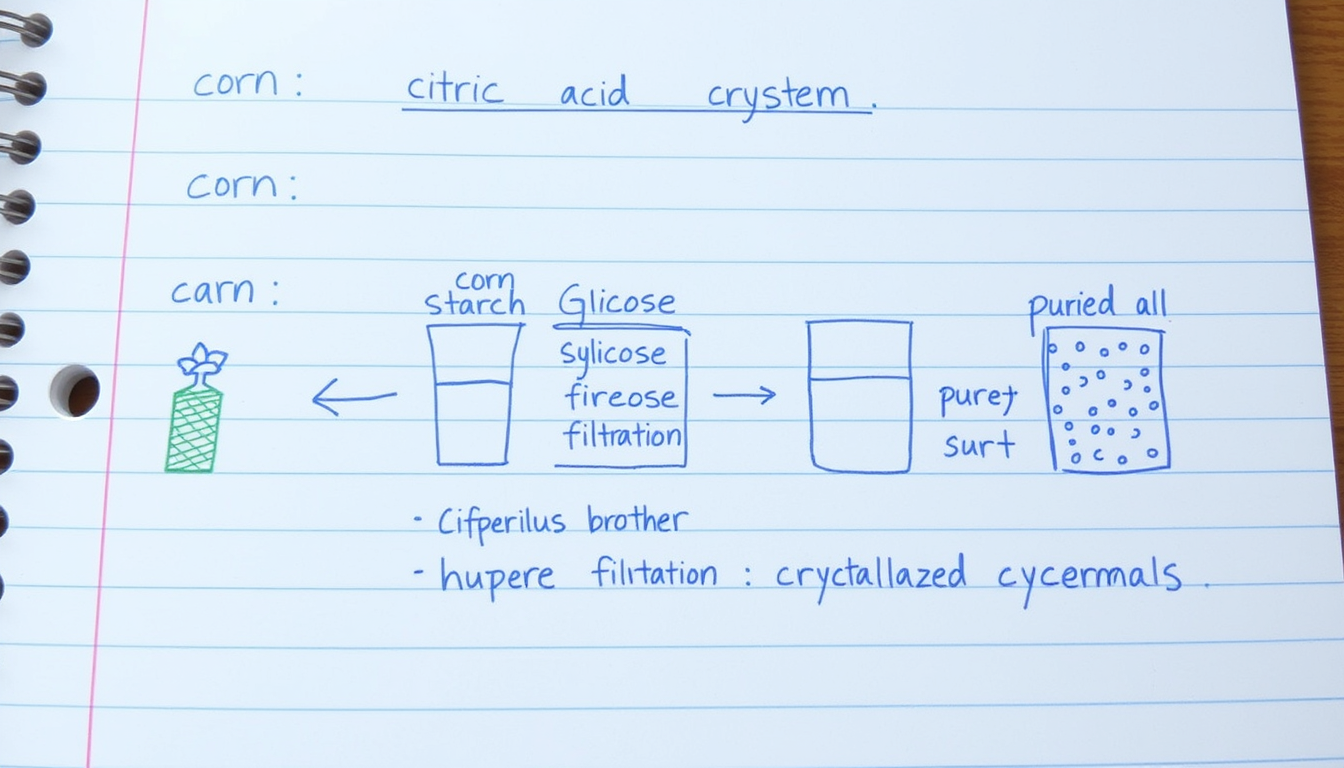 corn: citric acid crystem.
corn:
carn:
corn
starch
Glicose
sylicose
fireose
filtration
puret
surt
puried all
- Cifperilus brother
- hupere filitation : cryctallazed cycermals.